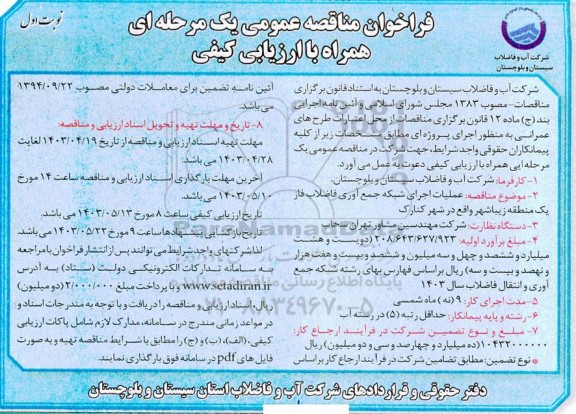 نوبت اول
فراخوان مناقصه عمومی یک مرحله ای
همراه با ارزیابی کیفی
شرکت آب و فاضلاب
سیستان و بلوچستان
شرکت آب و فاضلاب سیستان و بلوچستان به استناد قانون برگزاری
مناقصات- مصوب ۱۳۸۳ مجلس شورای اسلامی و آئین نامه اجرایی
بند (ج) ماده ۱۲ قانون برگزاری مناقصات از محل اعتبارات طرح های
عمرانی به منظور اجرای پروژه ای مطابق مشخصات زیر از کلیه
پیمانکاران حقوقی واجد شرایط، جهت شرکت در مناقصه عمومی یک
مرحله ایی همراه با ارزیابی کیفی دعوت به عمل می آورد.
۱- کارفرما: شرکت آب و فاضلاب سیستان و بلوچستان.
۲- موضوع مناقصه: عملیات اجرای شبکه جمع آوری فاضلاب فاز
یک منطقه زیباشهر واقع در شهر کنارک
۳- دستگاه نظارت: شرکت مهندسین مشاور تهران بوستن
۴- مبلغ برآورد اولیه: ۲۰۸/۶۴۳/۶۲۷/۹۲۳ (دویست و هشت
میلیارد و ششصد و چهل و سه میلیون و ششصد و بیست و هفت هزار
و نهصد و بیست و سه) ریال براساس فهارس بهای رشته شبکه جمع
آوری و انتقال فاضلاب سال ۱۴۰۳
۵- مدت اجرای کار: ۹ (نه) ماه شمسی
۶- رشته و پایه پیمانکار: حداقل رتبه (۵) در رشته آب
۷- مبلغ و نوع تضمین شرکت در فرآیند ارجاع کار:
۱۰۴۳۲۰۰۰۰۰۰ (ده میلیارد و چهارصد و سی و دو میلیون) ریال
نوع تضمین: مطابق تضامین شرکت در فرآیند ارجاع کار براساس
آئین نامه تضمین برای معاملات دولتی مصوب ۱۳۹۴/۰۹/۲۲
می باشد.
۸- تاریخ و مهلت تهیه و تحویل اسناد ارزیابی و مناقصه:
مهلت تهیه اسناد ارزیابی و مناقصه از تاریخ ۱۴۰۳/۰۴/۱۹ لغایت
۱۴۰۳/۰۴/۲۸ می باشد.
آخرین مهلت بارگذاری اسناد ارزیابی و مناقصه ساعت ۱۴ مورخ
۱۴۰۳/۰۵/۱۰ می باشد.
تاریخ ارزیابی کیفی ساعت ۸ مورخ ۱۴۰۳/۰۵/۱۳ می باشد.
تاریخ بازگشایی پیشنهادها ساعت ۹ مورخ ۱۴۰۳/۰۵/۲۲ می باشد.
لذا شرکتهای واجد شرایط می توانند پس از انتشار فراخوان با مراجعه
به سامانه تدارکات الکترونیکی دولت (ستاد) به آدرس
www.setadiran.ir و با پرداخت مبلغ ۲/۰۰۰/۰۰۰ (دو میلیون)
ریال اسناد ارزیابی و مناقصه را دریافت و با توجه به مندرجات اسناد و
در مواعد زمانی مندرج در سامانه، مدارک لازم شامل پاکات ارزیابی
کیفی، (الف)، (ب) و (ج) را مطابق با شرایط مناقصه تهیه و به صورت
فایل های pdf در سامانه فوق بارگذاری نمایند.
دفتر حقوقی و قراردادهای شرکت آب و فاضلاب استان سیستان و بلوچستان